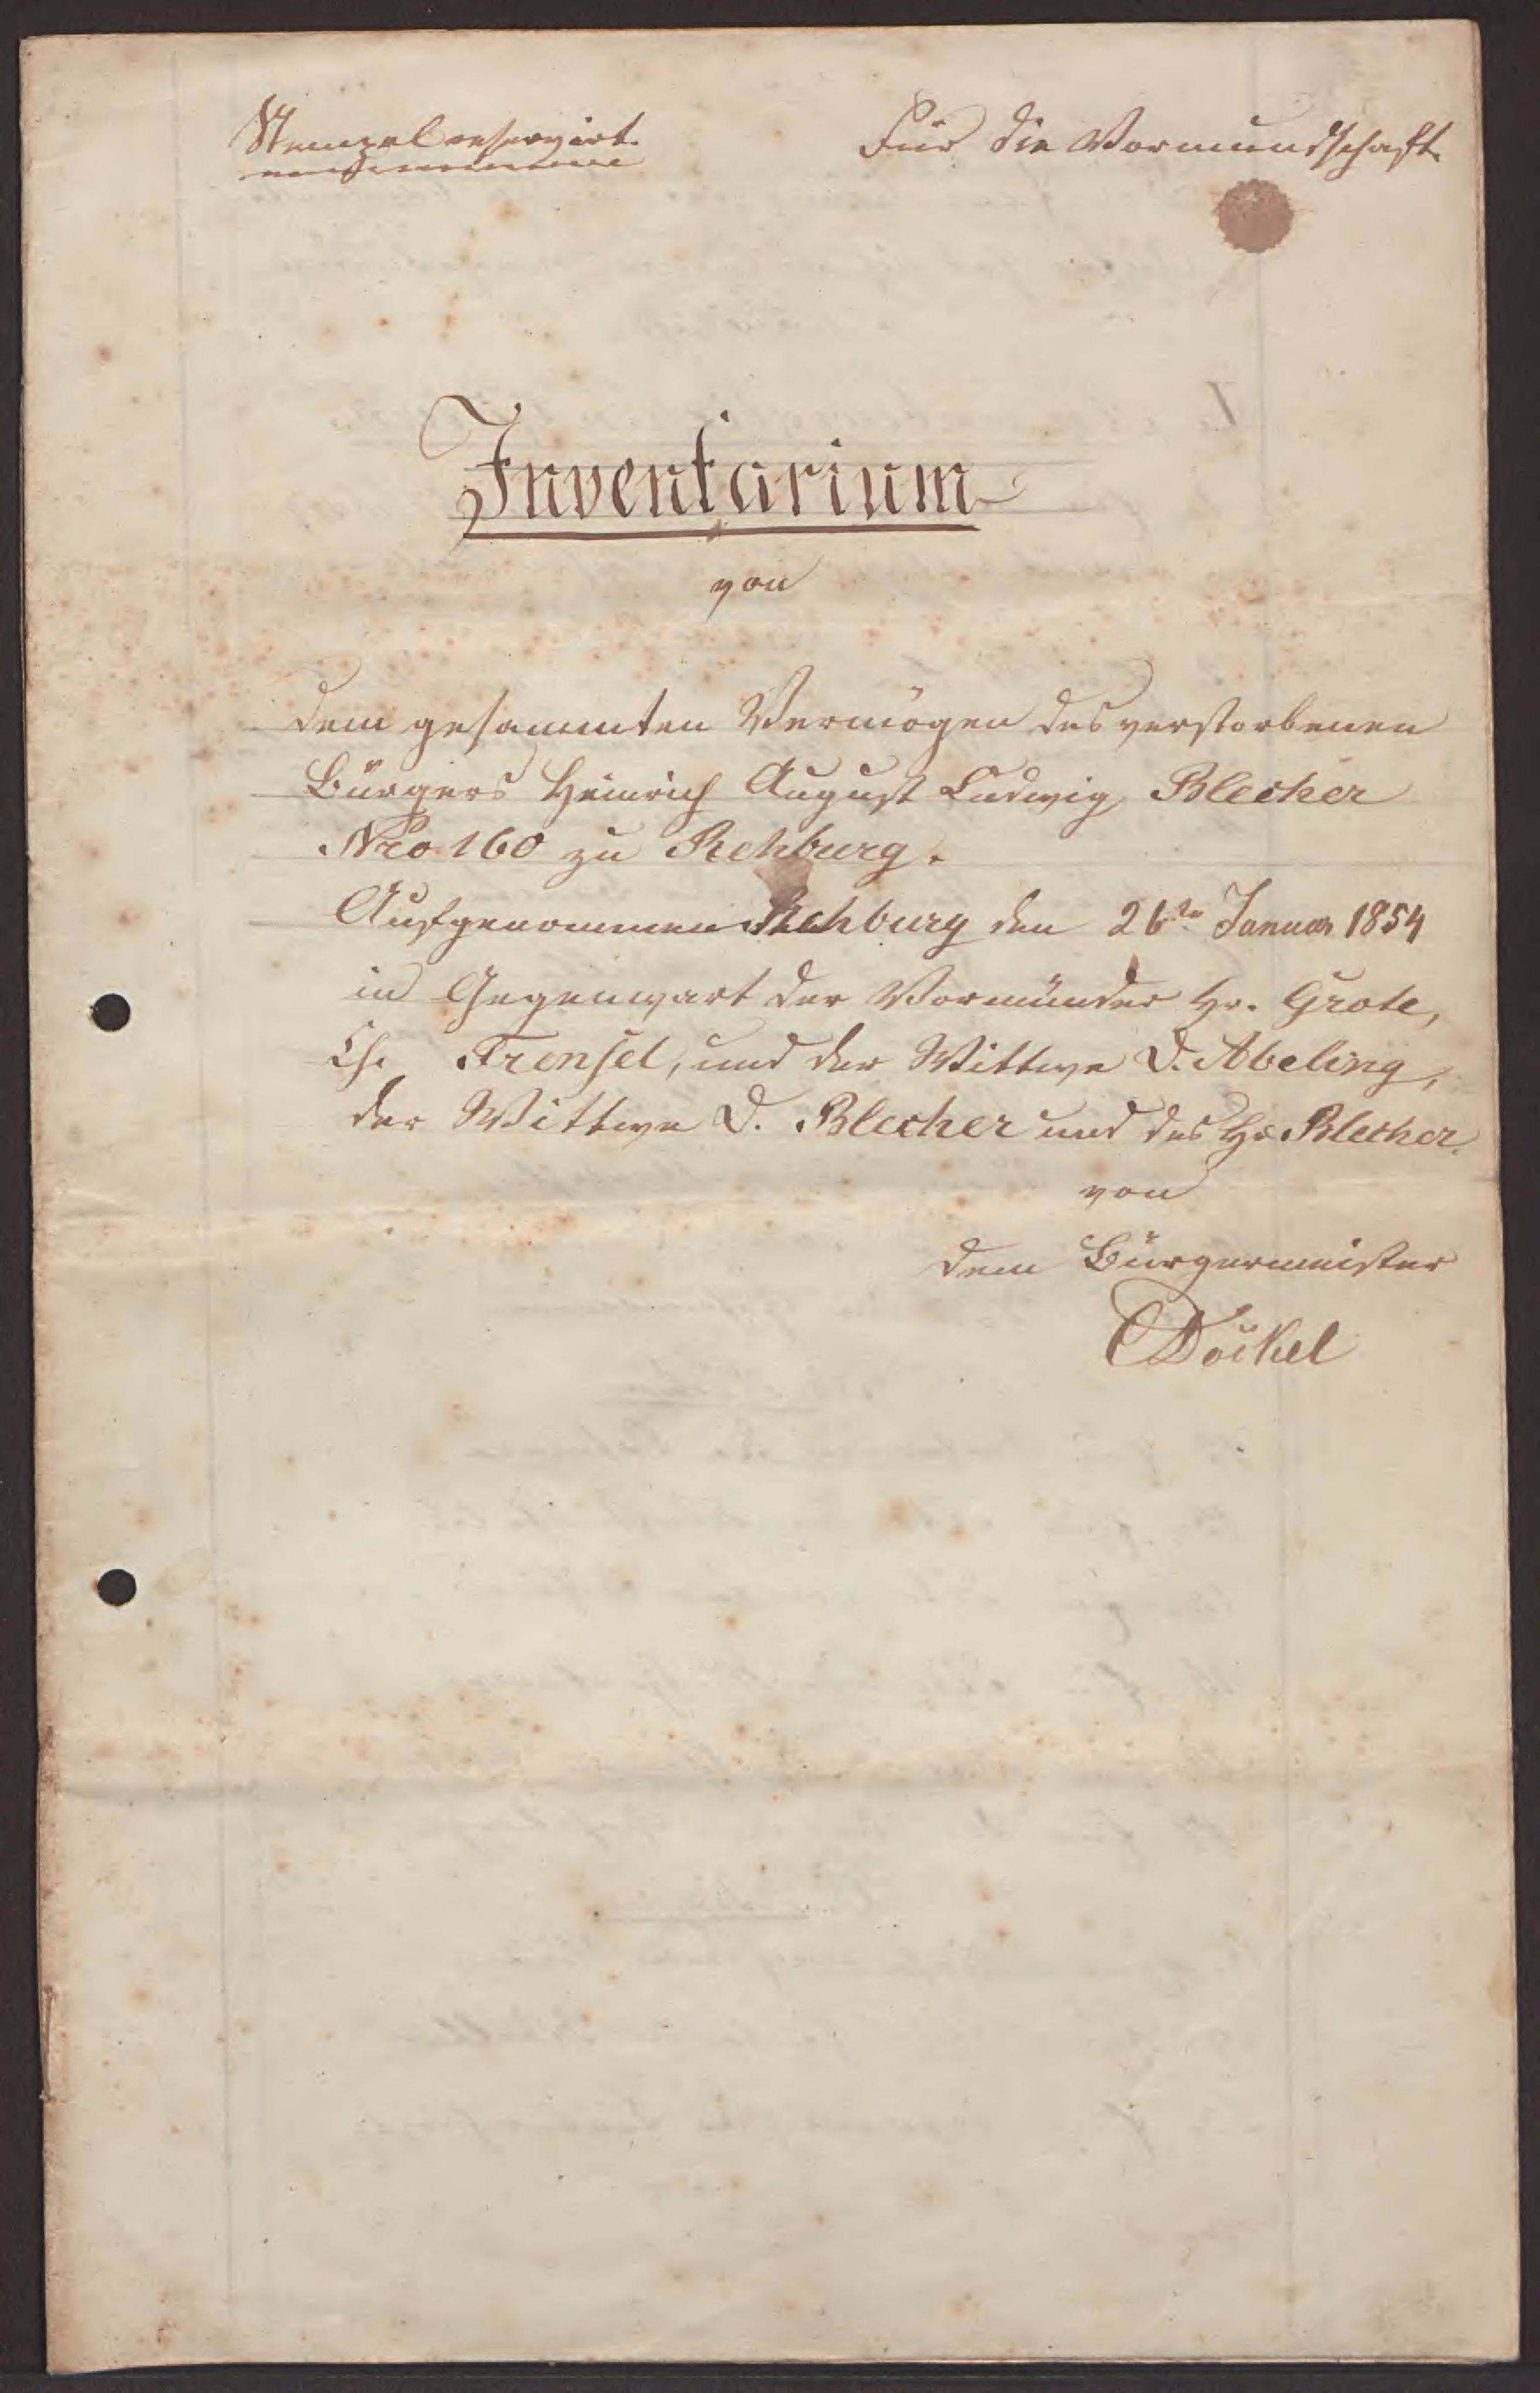 Stempel reservirt.
Für die Vormundschaft.
Inventarium
von
dem gesammten Vermögen des verstorbenen
Bürgers Heinrich August Ludwig Blecher
Nro 160 zu Rehburg.
Aufgenommen Rehburg den 26ten Januar 1854
in Gegenwart der Vormünder Hr. Grote,
Ch. Frensel, und der Wittwe D. Abeling,
der Wittwe D. Blecher und des Hr Blecher.
von
dem Bürgermeister
Döckel